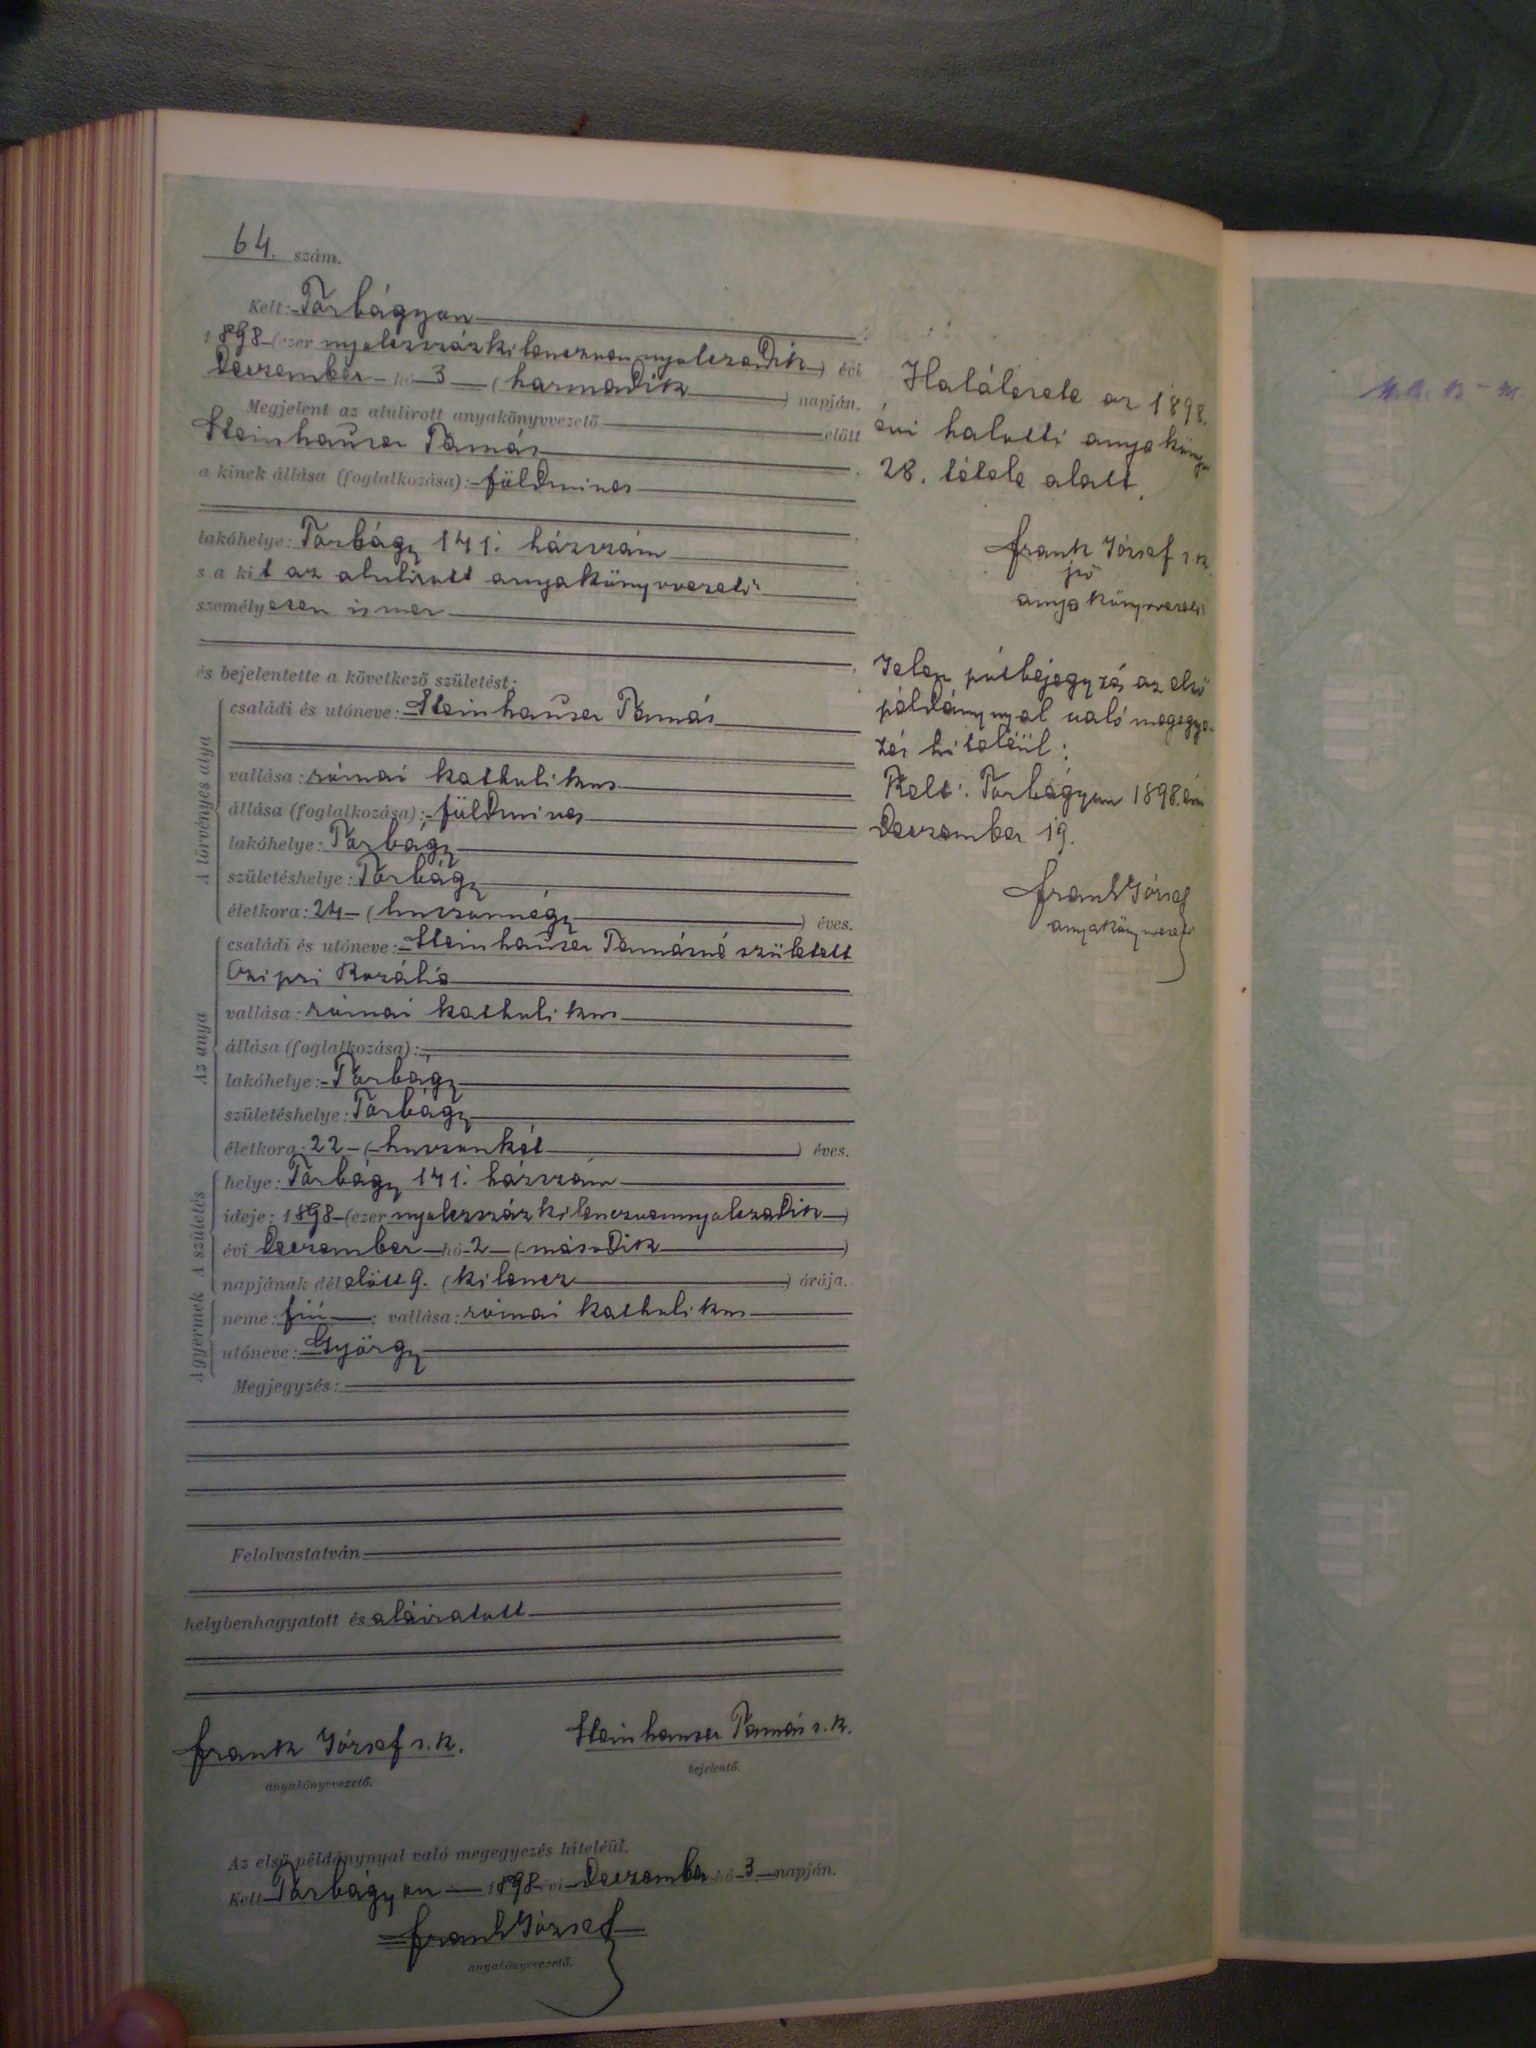 64. szám.
Kelt: Torbágyon
1898 (ezer nyolczszázkilenczvennyolczadik) évi
Deczember hó 3 (harmadik) napján.
Megjelent az alulirott anyakönyvvezető előtt
Steinhauser Tamás
a kinek állása (foglalkozása): földmives
lakóhelye: Torbágy 141. házszám
s a kit az alulirott anyakönyvvezető
személyesen ismer
és bejelentette a következő születést:
A törvényes atya
családi és utóneve: Steinhauser Tamás
vallása: római katholikus
állása (foglalkozása): földmives
lakóhelye: Torbágy
születéshelye: Torbágy
életkora: 24 (huszonnégy) éves.
Az anya
családi és utóneve: Steinhauser Tamásné született
Czipri Rozália
vallása: római katholikus
állása (foglalkozása):
lakóhelye: Torbágy
születéshelye: Torbágy
életkora: 22 (huszonkét) éves.
A születés
helye: Torbágy 141. házszám
ideje: 1898 (ezer nyolczszázkilenczvennyolczadik)
évi Deczember hó 2 (második)
napjának délelőtt 9. (kilencz) órája.
A gyermek
neme: fiú; vallása: római katholikus
utóneve: György
Megjegyzés:
Felolvastatván
helybenhagyatott és aláiratott
Frank József s. k.
anyakönyvvezető.
Steinhauser Tamás s. k.
bejelentő.
Az első példánynyal való megegyezés hiteléül.
Kelt Torbágyon 1898 évi Deczember hó 3 napján.
Frank József
anyakönyvvezető.
Halálesete az 1898.
évi halotti anyakönyv
28. tétele alatt.
Frank József s. k.
anyakönyvvezető
Jelen pótbejegyzés az első
példánynyal való megegye-
zés hiteléül:
Kelt: Torbágyon 1898. évi
Deczember 19.
Frank József
anyakönyvvezető